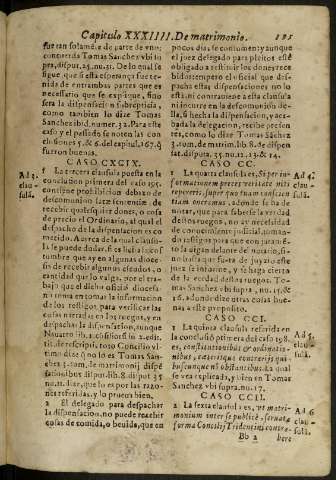 Capitulo XXXIIII. De matrimonio. 195
fue tan solamẽte de parte de vno:
contrerda Tomas Sanchez vbi su
pra, disput. 25. nu. 31. De lo qual se
sigue que si esta esperança fue te-
nida de entrambas partes que es
necessario que se explique, sino
sera la dispensacion subrepticia,
como tambien lo dize Tomas
Sanchez ibid. numer. 32. Para este
caso y el passado se noten las con
clusiones 5. & 6. del capitulo 67. q̃
fueron buenas.
CASO CXCIX.
Ad 3.
clau-
sula.
1 La tercera clausula puesta en la
conclusion primera del caso 195.
contiene prohibicion debaxo de
descomunion latæ sententiæ de
recebir qualesquier dones, o cosa
de precio el Ordinario, al qual el
despacho de la dispensacion es co
metido. Acerca de la qual clausu-
la se puede dudar, si es licita la co
stumbre que ay en algunas dioce-
sis de recebir algunos escudos, o
cantidad que lo valga, por el tra-
bajo que el dicho oficial dioces-
no toma en tomar la informacion
de los testigos para verificar las
cosas narradas en los ruegos, y en
despachar la dispensacion, aunque
Nauarro lib. 1.
tit. de rescriptis, toto Concilio vl-
timo dize q̃ no lo es Tomas San-
chez 3. tom. de matrimonij dispẽ
sationibus disput. lib. 8. disput. 35
nu. 21. dize, que lo es por las razo-
nes referidas, y lo prueua bien.
2 El delegado para despachar
la dispensacion, no puede recebir
cosas de comida, o beuida, que en
pocos dias, se consumen y aunque
el juez delegado para pleitos esté
obligado a restituir los dones rece
bidos: tempero el oficial que des-
pacha estas dispensaciones no lo
està, ni aunque reciba esta clausula
ni incurre en la descomunion de-
lla, si hecha la dispensacion, y aca-
bada la delegacion, recibe presen
tes, como lo dize Tomas Sãchez
3. tom. de matrim. lib. 8. de dispen
sat. disputa. 35. nu. 12. 13. & 14.
CASO CC.
Ad 4.
clau-
sula.
1 La quarta clausula es, Si per in-
formationem preces veritate niti
repereris, super quo tuam conscien
tiam oneramus, ademas se ha de
notar, que para saberse la verdad
destos ruegos, no ay necessidad
de conocimiento judicial, toman-
do testigos para que con juramẽ-
to lo digan delante del notario, si-
no basta que fuera de juyzio este
juez se informe, y se haga cierto
de la verdad destos ruegos. Tho-
mas Sanchez vbi supra, nu. 15. &
16. adonde dize otras cosas bue-
nas a este proposito.
CASO CCI.
Ad 5.
clau-
sula.
1 La quinta clausula referida en
la conclusiõ primera del caso 198.
es, constitutionibus & ordinatio-
nibus, cæterisque contrarijs qui-
buscunque nõ obstantibus. La qual
se vea explicada, y bien en Tomas
Sanchez vbi supra, nu. 17.
CASO CCII.
Ad 6
clau-
sula.
1 La sexta clausula es, vt matri-
monium inter se publicè, seruata
forma Concilij Tridentini contra-
Bb 2 here